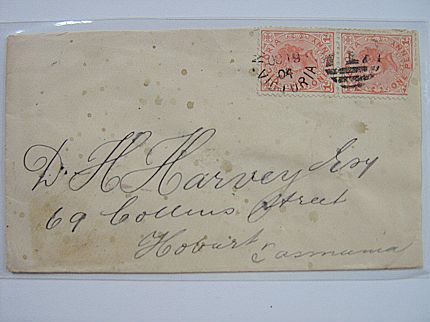 19
04
VICTORIA
D. H Harvey Esq
69 Collins Street
Hobart Tasmania